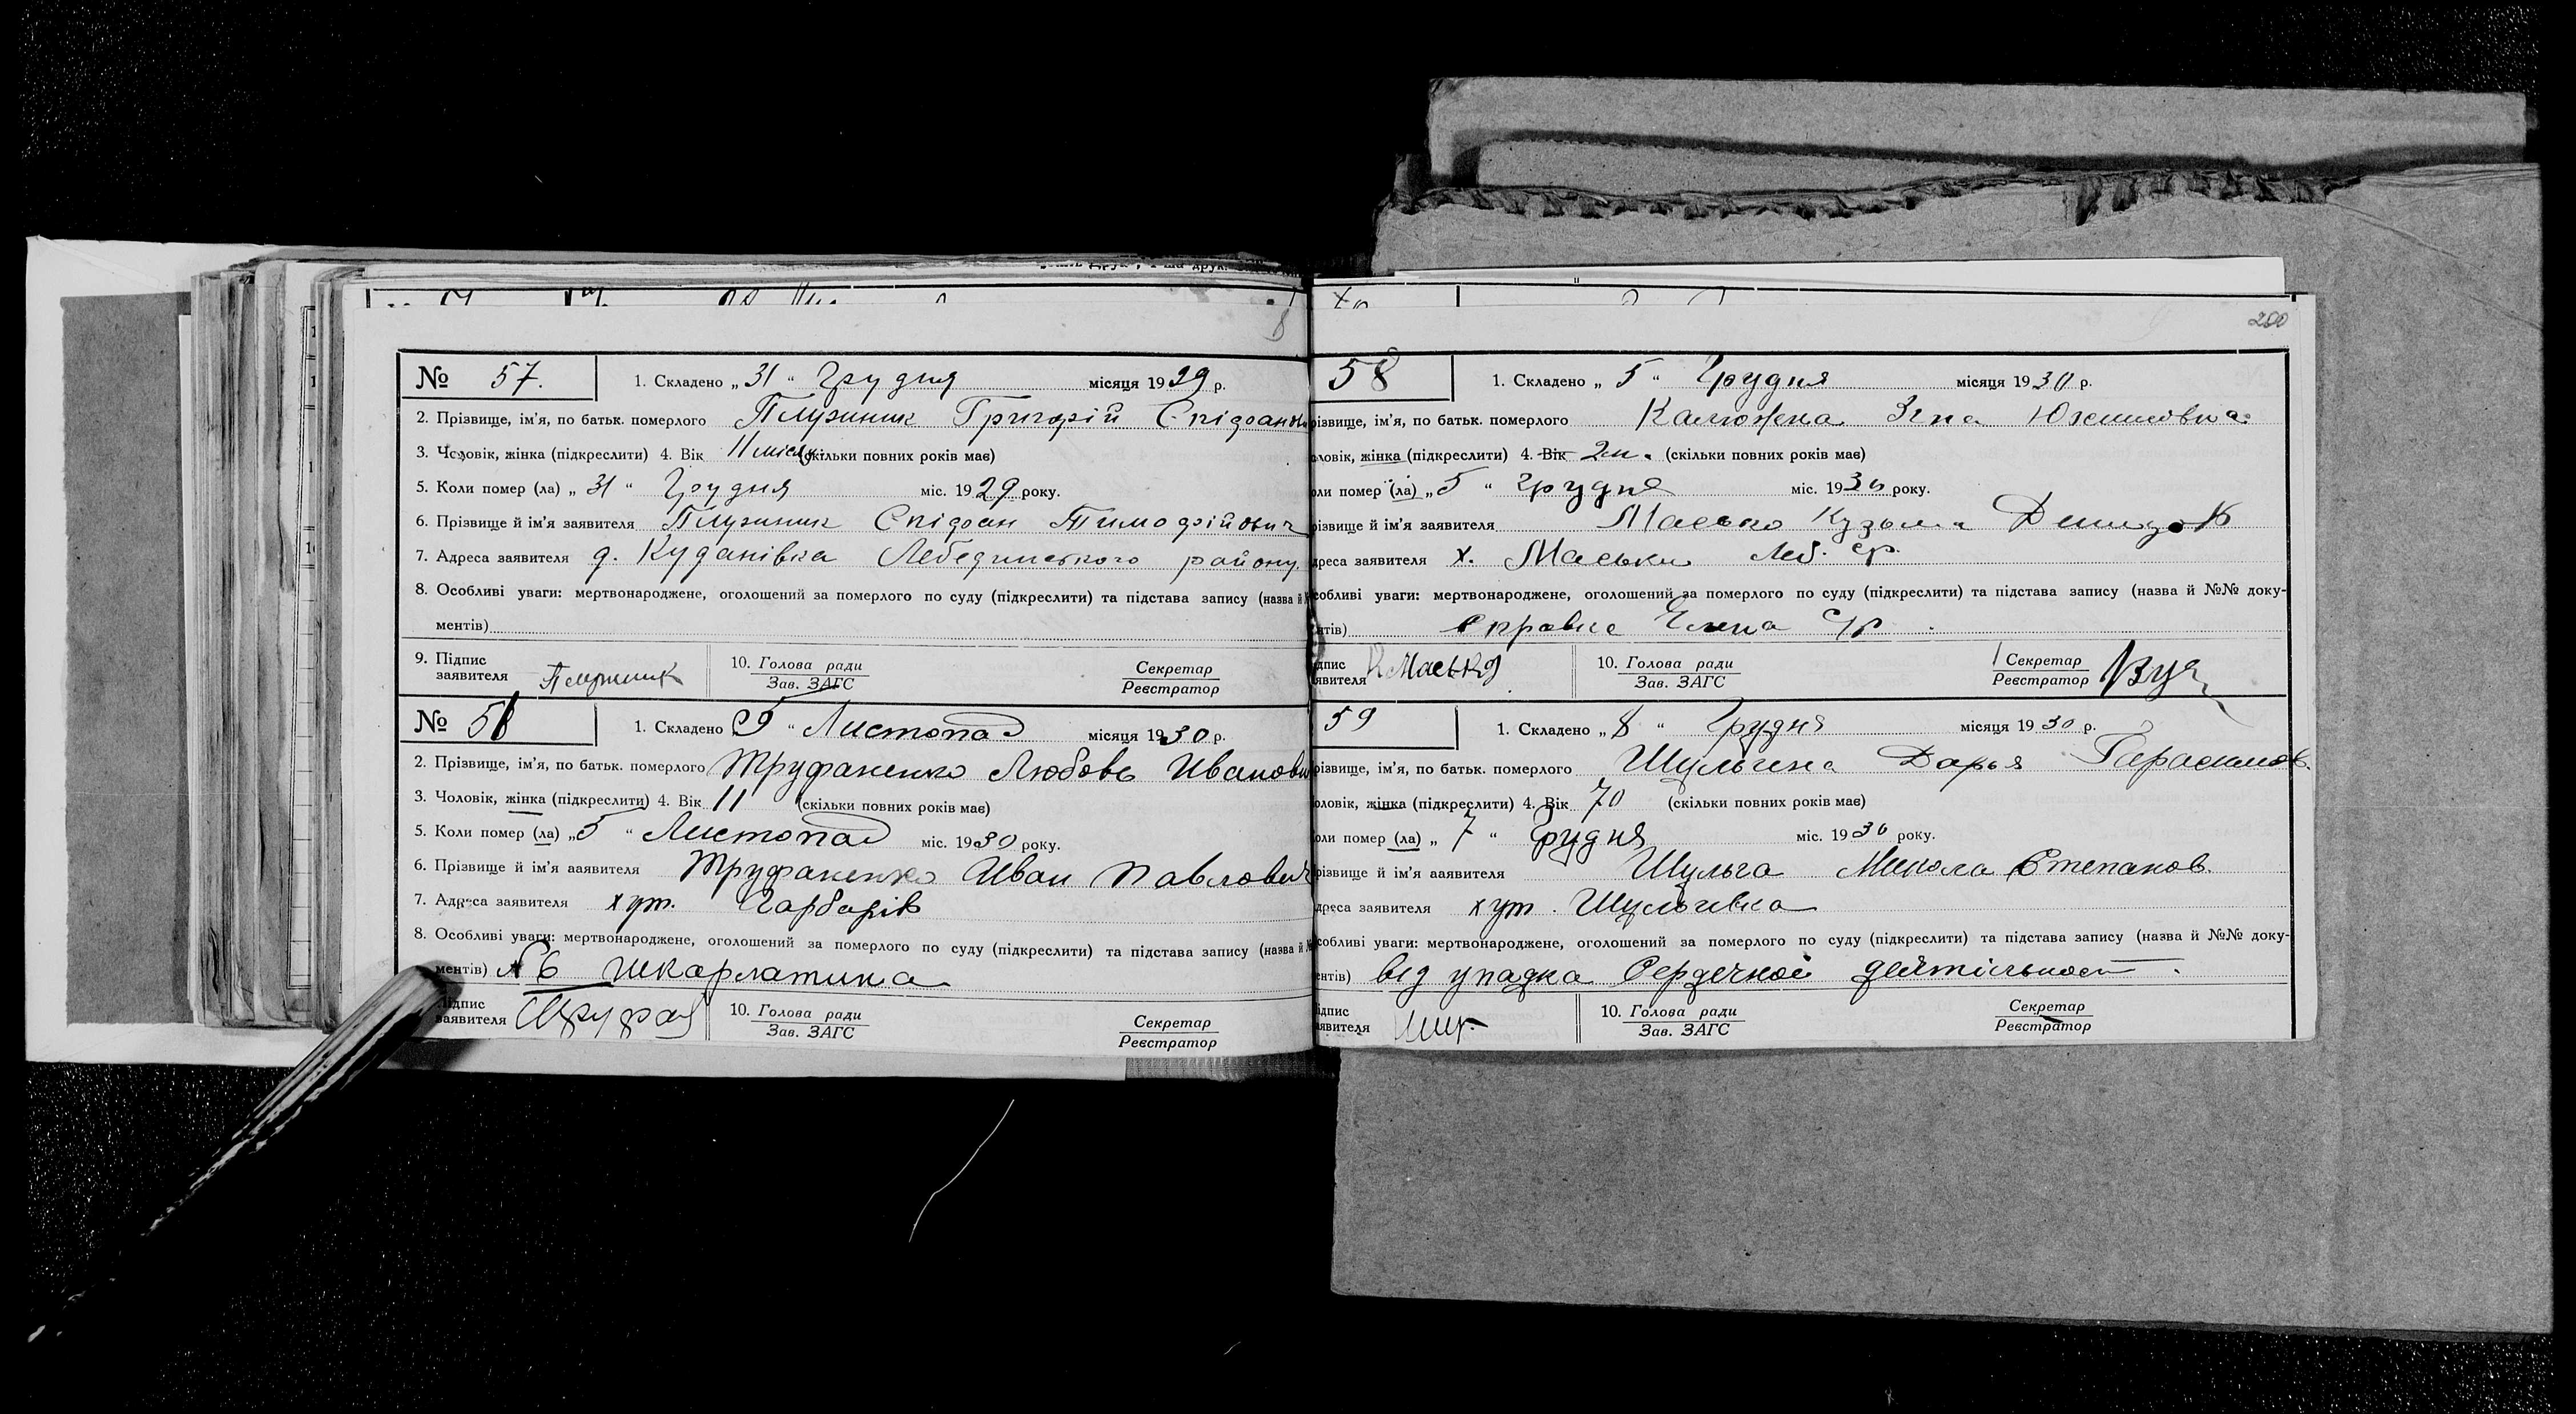 200
№ 57. 1. Складено „31“ Грудня місяця 1929 р.
2. Прізвище, ім'я, по батьк. померлого Плужник Григорій
3. Чоловік, жінка (підкреслити) 4. Вік 11 місяц. (скільки повних років має)
5. Коли помер (ла) „31“ Грудня міс. 1929 року.
6. Прізвище й ім'я заявителя Плужник Спідоан Тимофійович
7. Адреса заявителя д. Куданівка Лебединського району.
8. Особливі уваги: мертвонароджене, оголошений за померлого по суду (підкреслити) та підстава запису (назва й
ментів)
9. Підпис заявителя Плужник 10. Голова ради Зав. ЗАГС Секретар Реєстратор
№ 1. Складено „5“ Листопад місяця 1930 р.
2. Прізвище, ім'я, по батьк. померлого Труфаненко Любовь Иванови
3. Чоловік, жінка (підкреслити) 4. Вік 11 (скільки повних років має)
5. Коли помер (ла) „5“ Листопад міс. 1930 року.
6. Прізвище й ім'я заявителя Труфаненко Иван Павлович
7. Адреса заявителя хут. Гарбарів
8. Особливі уваги: мертвонароджене, оголошений за померлого по суду (підкреслити) та підстава запису (назва й
ментів) №6 шкарлатина
Підпис заявителя Труфан 10. Голова ради Зав. ЗАГС Секретар Реєстратор
58 1. Складено „5“ Грудня місяця 1930 р.
різвище, ім'я, по батьк. померлого Калюжена Зина Юхимовна
ловік, жінка (підкреслити) 4. Вік 2м. (скільки повних років має)
оли помер (ла) „5“ Грудня міс. 1930 року.
різвище й ім'я заявителя Масько Кузьма
дреса заявителя х. Маськи Леб. ср.
собливі уваги: мертвонароджене, оголошений за померлого по суду (підкреслити) та підстава запису (назва й №№ доку-
нтів) справка
дпис явителя К Масько 10. Голова ради Зав. ЗАГС Секретар Реєстратор
59 1. Складено „8“ Грудня місяця 1930 р.
різвище, ім'я, по батьк. померлого Шульгина Дарья Гарасимов.
оловік, жінка (підкреслити) 4. Вік 70 (скільки повних років має)
оли помер (ла) „7“ Грудня міс. 1930 року.
різвище й ім'я заявителя Шульга Микола Степанов.
дреса заявителя хут. Шульгивка
собливі уваги: мертвонароджене, оголошений за померлого по суду (підкреслити) та підстава запису (назва й №№ доку-
ентів) від упадка Сердечної деятільност
ідпис явителя 10. Голова ради Зав. ЗАГС Секретар Реєстратор